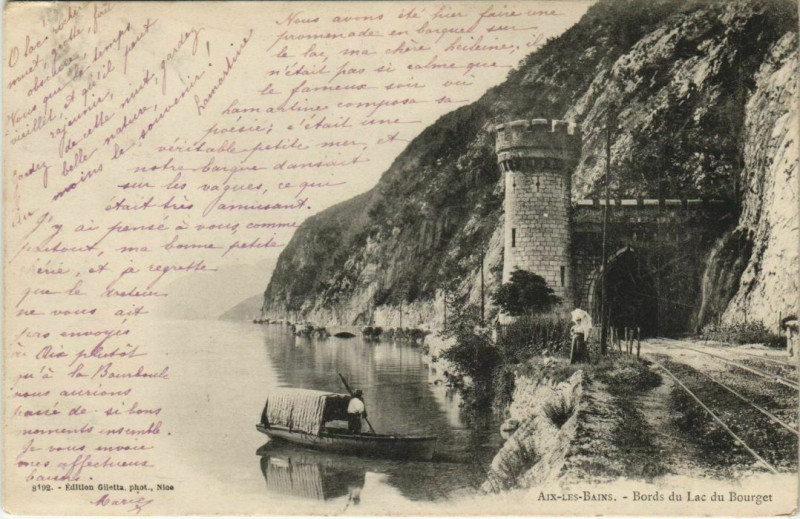 O lac! rochers
muets,
obscure!
Vous que le temps
et qu'il peut
rajeunir,
Gardez de cette nuit, gardez,
belle nature,
Au moins le souvenir!
Lamartine
Nous avons été hier faire une
promenade en barque sur
le lac, ma chère il
n'était pas si calme que
le fameux soir où
Lamartine composa sa
poésie; c'était une
véritable petite mer, et
notre barque dansait
sur les vagues, ce qui
était très amusant.
J'y ai pensé à vous, comme
partout, ma bonne petite
chérie, et je regrette
que le docteur
ne vous ait
pas envoyée
à Aix plutôt
qu'à la Bourboule
nous aurions
passé de si bons
moments ensemble.
Je vous envoie
mes affectueux
baisers.
Marie
8192. - Édition Giletta, phot., Nice
AIX-LES-BAINS. - Bords du Lac du Bourget